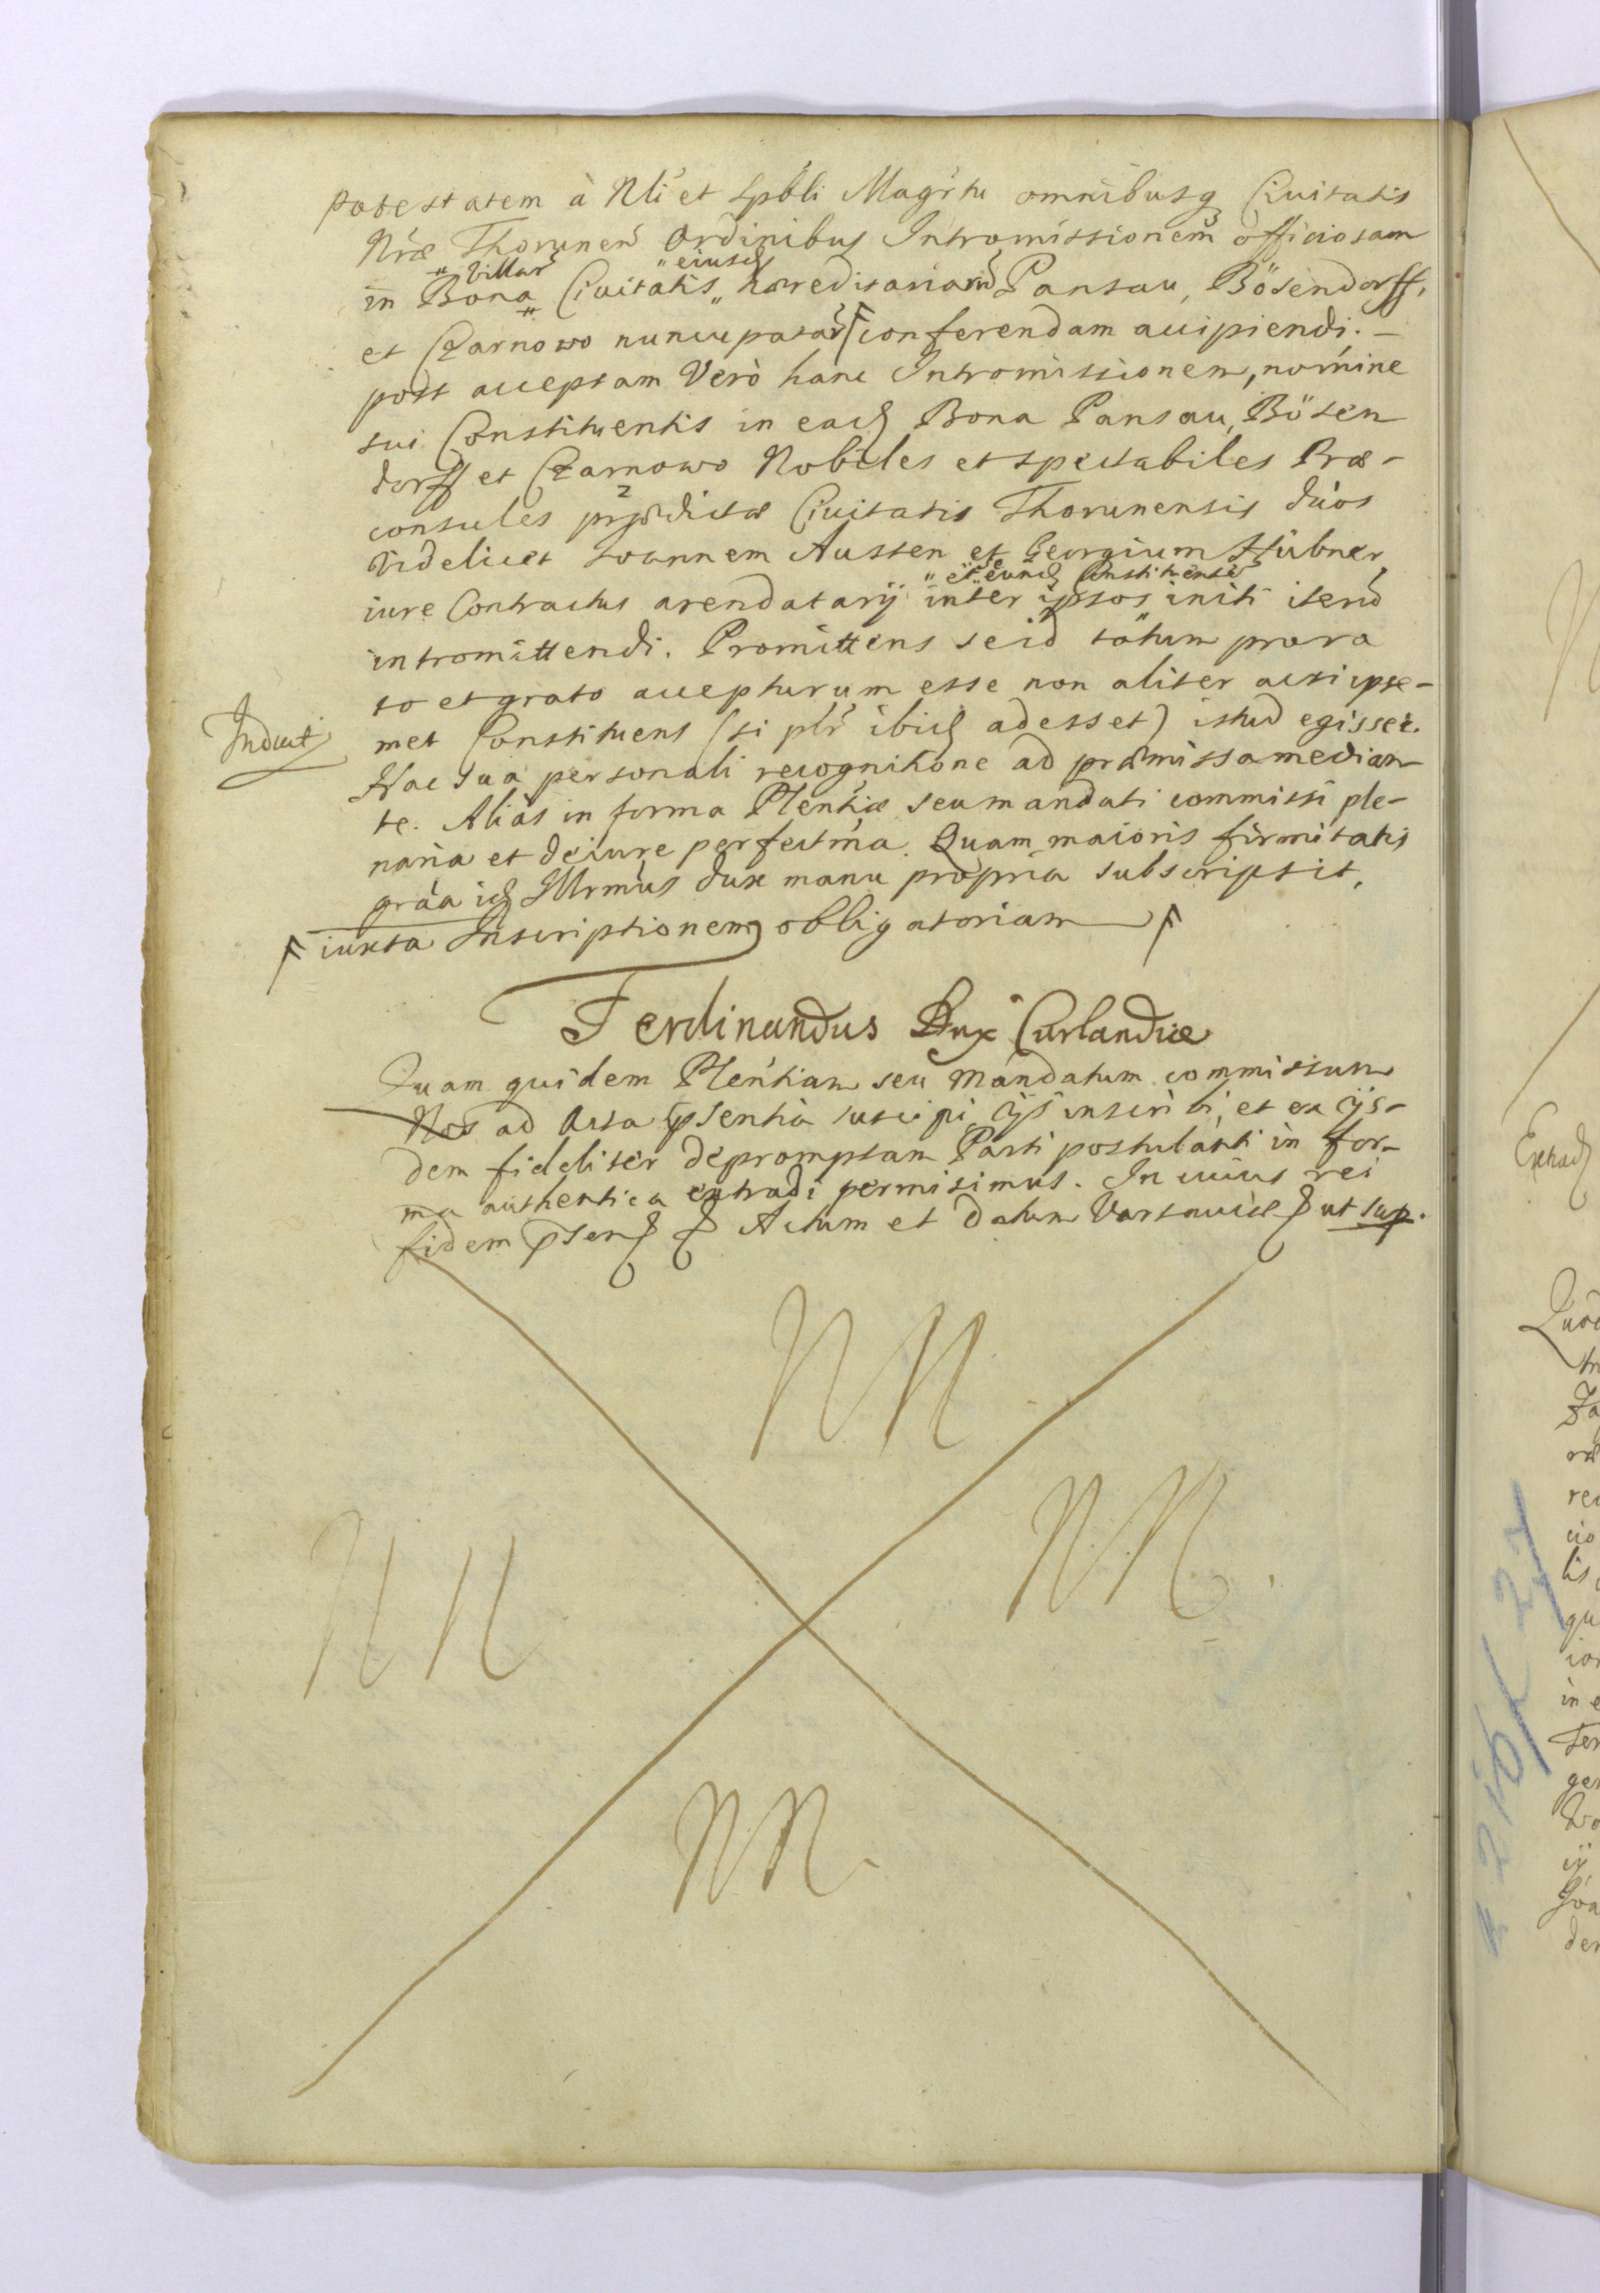 potestatem à Nli et Spbli Magrtu omnibusq Civitatis
Nræ Thorunen Ordinibus Intromissionem officiosam
" villar " eiusd
in Bona Civitatis " hæreditariam Pansau, Bösendorff,
et Czarnowo nuncupatar conferendam accipiendi. –
post acceptam Verò hanc Intromissionem, nomine
sui Constituentis in ead Bona Pansau, Bösen
dorff et Czarnowo Nobiles et spectabiles Præ-
consules prædictæ Civitatis Thorunensis duos
Videlicet Ioannem Austen et Georgium Hübner,
" et eund Constituente
iure Contractus arendatarÿ inter ipsos initi
intromittendi. Promittens se id totum pro ra
to et grato accepturum esse non aliter acsi ipse-
Induct
met Constituens (si plr ibid adesset) istud egisset.
Hac sua personali recognitione ad præmissa median
te. Aliàs in forma Plentiæ seu mandati commissi ple-
naria et de iure perfectma. Quam maioris firmitatis
gráa id Illrmus dux manu propria subscripsit,
iuxta Inscriptionem obligatoriam
Ferdinandus Dux Curlandiæ
Quam quidem Plentiam seu Mandatum commissum
Nos ad Acta psentia suscipi, ÿs inscribi, et ex ÿs-
dem fideliter depromptam Parti postulanti in for-
ma authentica extradi permisimus. In cuius rei
fidem psen Actum et datum Varsaviæ ut sup.
NN
NN.
NN
NN.
Extrad